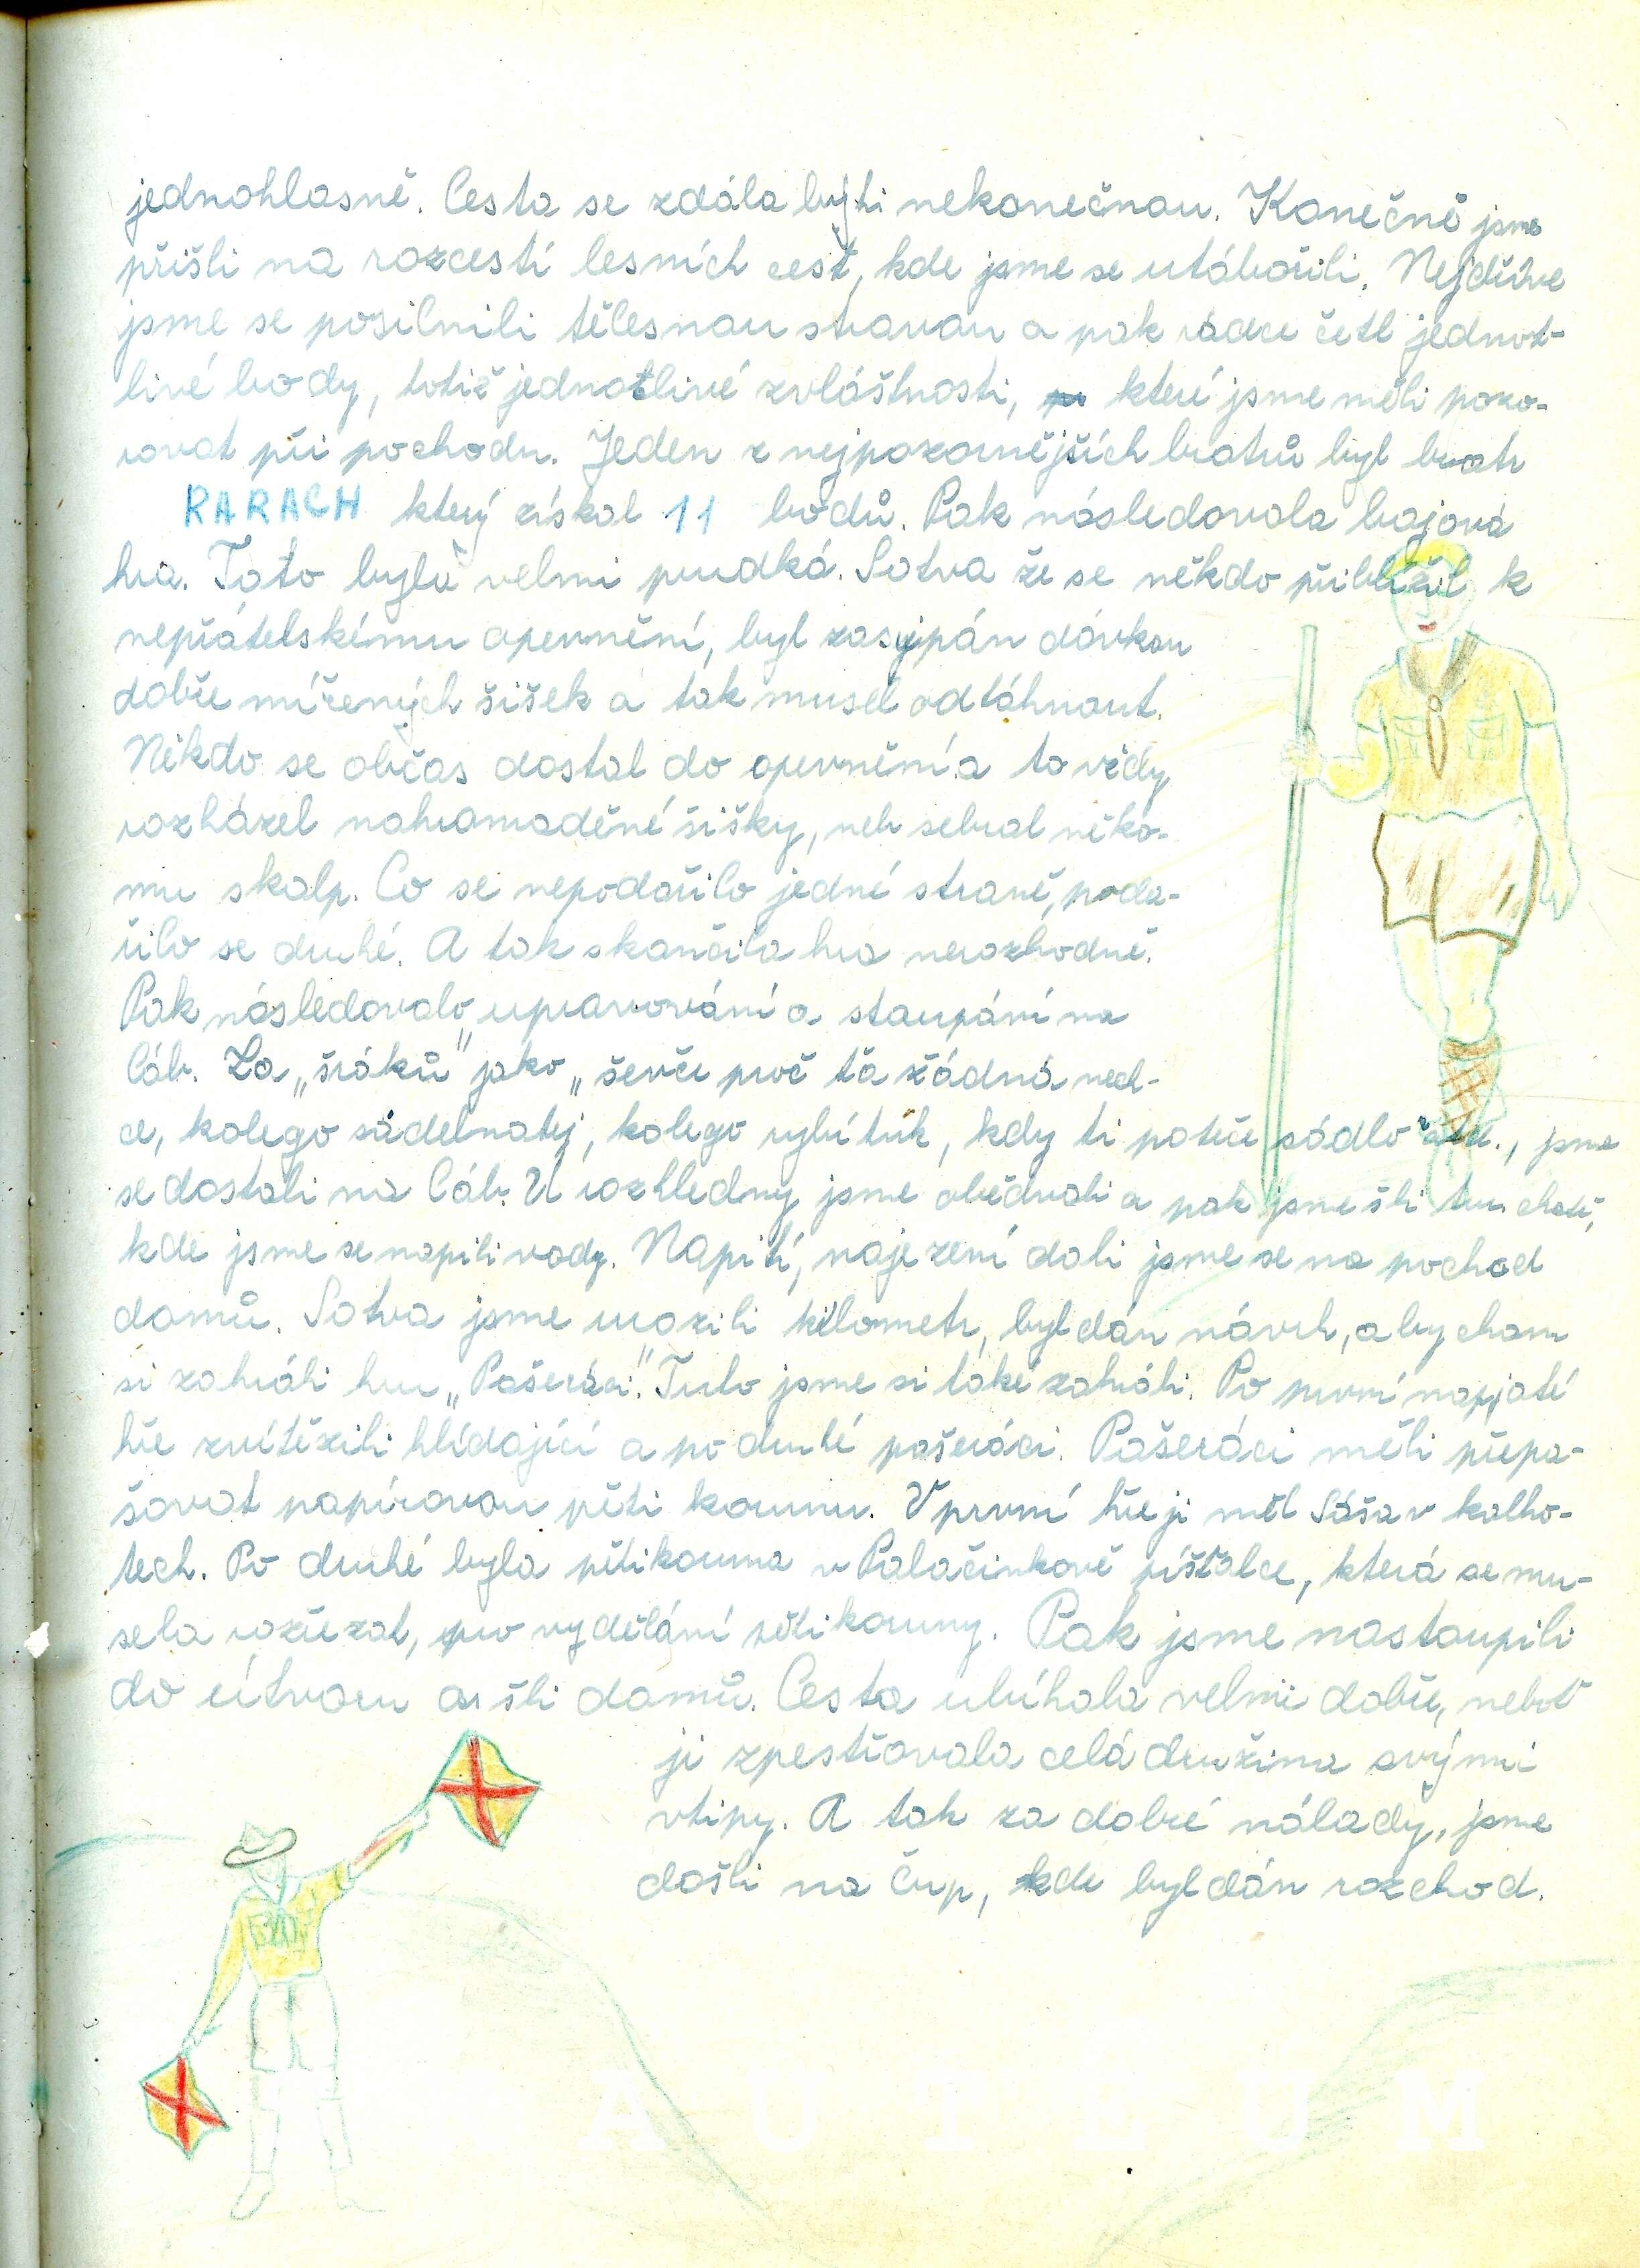 jednohlasně. Cesta se zdála býti nekonečnou. Konečně jsme
přišli na rozcestí lesních cest, kde jsme se utábořili. Nejdříve
jsme se posilnili tělesnou stravou a pak rádce četl jednot-
livé body, totiž jednotlivé zvláštnosti, které jsme měli pozo-
rovat při pochodu. Jeden z nejpozornějších bratrů byl bratr
RARACH který získal 11 bodů. Pak následovala bojová
hra. Tato byla velmi prudká. Sotva že se někdo přiblížil k
nepřátelskému opevnění, byl zasypán dávkou
dobře mířených šišek a tak musel odtáhnout.
Někdo se občas dostal do opevnění a to vždy
rozházel nahromaděné šišky, neb sebral něko-
mu skalp. Co se nepodařilo jedné straně, poda-
řilo se druhé. A tak skončila hra nerozhodně.
Pak následovalo upravování a stoupání na
Cáb. Za „šráků" jako „ševče proč tě žádná nech-
ce, kolego sádelnatý, kolego rybítúk, kdy ti poteče sádlo" atd., jsme
se dostali na Cáb. U rozhledny jsme obědvali a pak jsme šli ku chatě,
kde jsme se napili vody. Napití, najezení dali jsme se na pochod
domů. Sotva jsme urazili kilometr, byl dán návrh, abychom
si zahráli hru „Pašeráci". Tuto jsme si také zahráli. Po první napjaté
hře zvítězili hlídající a po druhé pašeráci. Pašeráci měli přepa-
šovat papírovou pěti korunu. V první hře ji měl Sáša v kalho-
tech. Po druhé byla pětikoruna v Palačinkově píšťalce, která se mu-
sela rozřezat, pro vydělání pětikoruny. Pak jsme nastoupili
do útvaru a šli domů. Cesta ubíhala velmi dobře, neboť
ji zpestřovala celá družina svými
vtipy. A tak za dobré nálady, jsme
došli na Čup, kde byl dán rozchod.